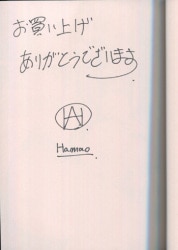 お買い上げ
ありがとうございます
Hamao